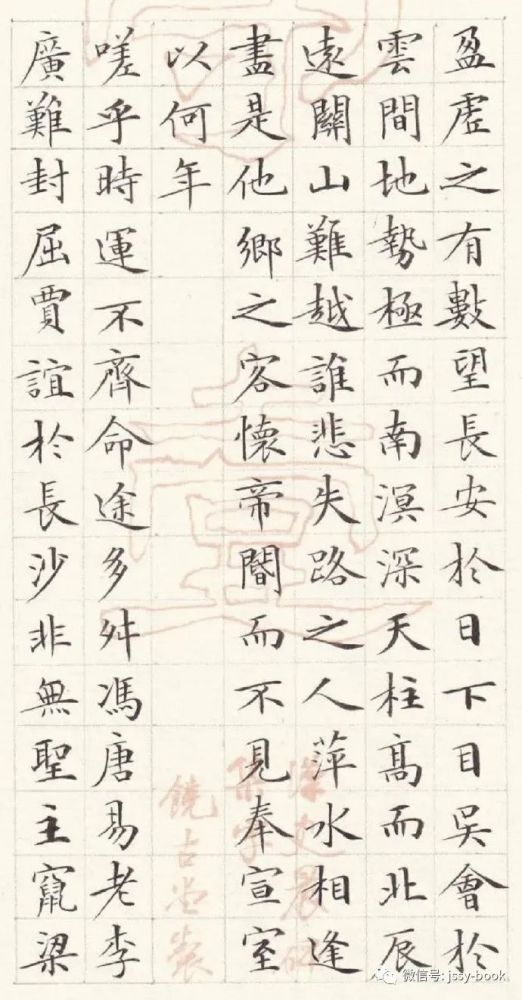 盈虛之有數望長安於日下目吳會於
雲間地勢極而南溟深天柱高而北辰
遠關山難越誰悲失路之人萍水相逢
盡是他鄉之客懷帝閽而不見奉宣室
以何年
嗟乎時運不齊命途多舛馮唐易老李
廣難封屈賈誼於長沙非無聖主竄梁
微信号: jssy-book